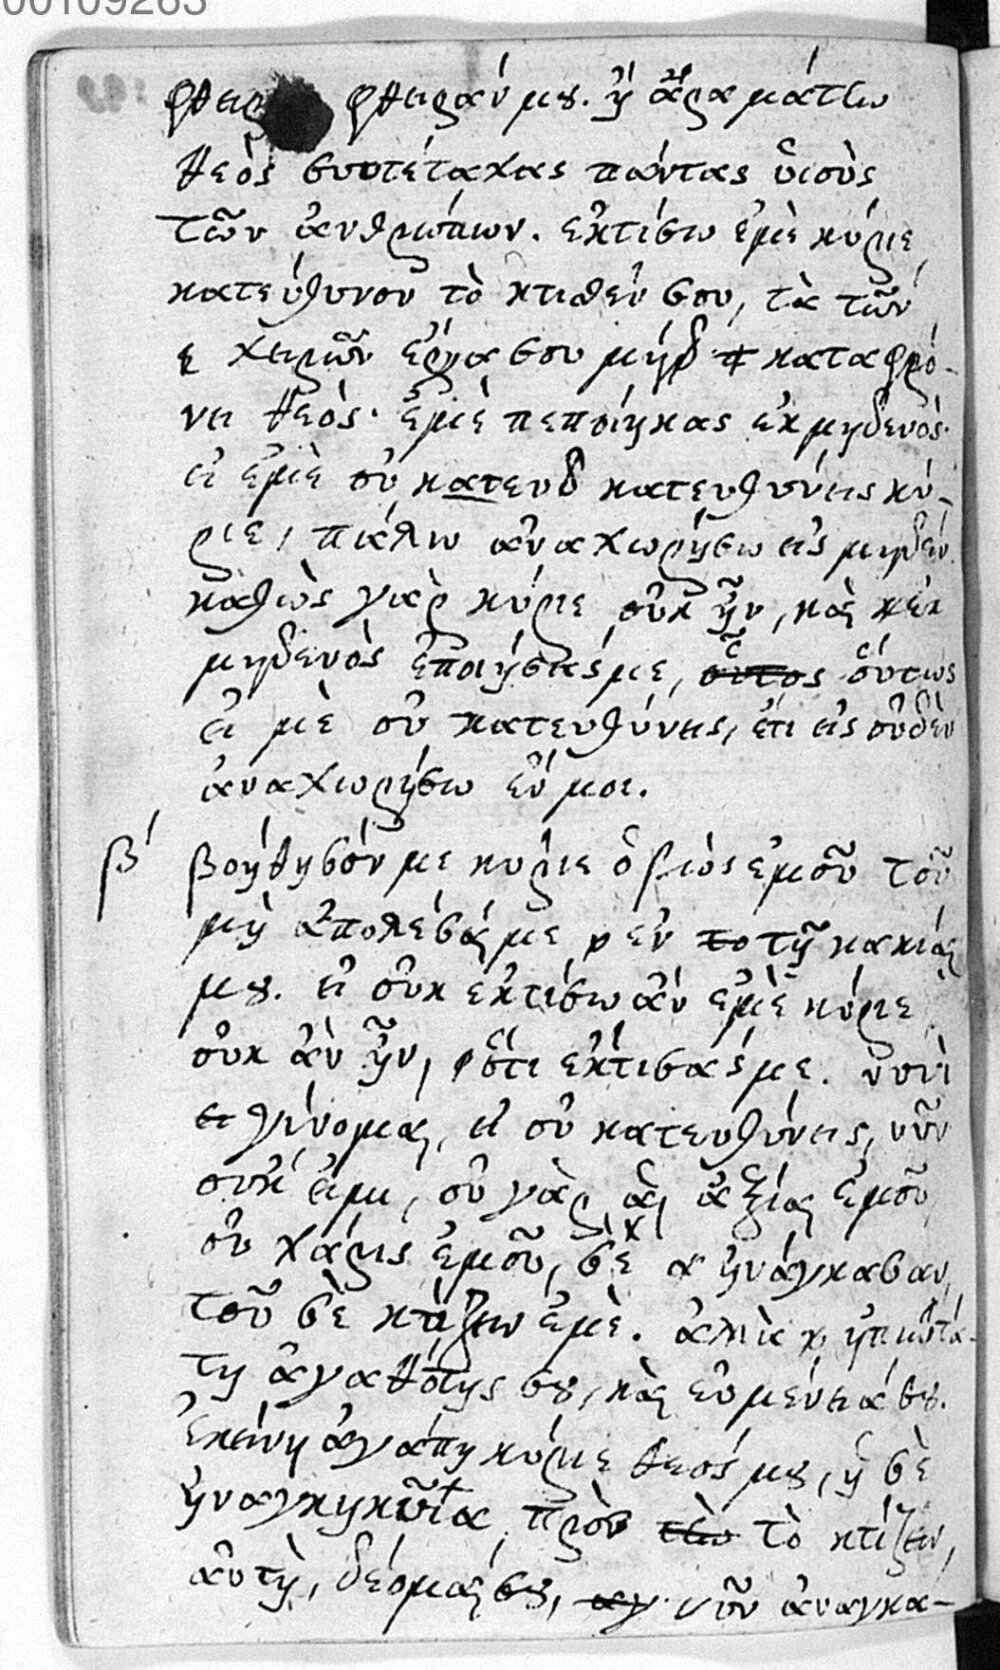 00109263
φθειρ φθειράν μȣ. ἢ ἆρα μάτην
θεὸς συντέταχας πάντας ὑιοὺς
τῶν ἀνθρώπων. ἐκτίσω ἐμὲ κύριε
κατεύθυνον τὸ κτισθέν σου, τὰ τῶν
χειρῶν ἔργα σου μὴ καταφρό-
νει θεός· ἐμὲ πεποίηκας ἐκ μηδενός·
εἰ ἐμὲ οὐ κατευθ κατευθύνεις κύ-
ριε, πάλιν ἀναχωρήσω εἰς μηδέν
καθὼς γὰρ κύριε οὐκ ἦν, καὶ ἐκ
μηδενὸς ἐποίησάς με, οὗτος οὕτως
εἰ μὲ οὐ κατευθύνεις, ἔτι εἰς οὐδὲν
ἀναχωρήσω ἐν μοι.
β΄ βοήθησόν με κύριε ὁ βιὸς ἐμοῦ τοῦ
μὴ ἀπολέσαι με ἐν το τῇ κακίᾳ
μȣ. εἰ οὐκ ἐκτίσω ἂν ἐμὲ κύριε
οὐκ ἂν ἦν, ὅτι ἔκτισάς με. νυνὶ
γίνομαι, εἰ οὐ κατευθύνεις, νῦν
οὐκ εἰμι, οὐ γὰρ αἱ ἀξίαι ἐμοῦ
οὐ χάρις ἐμοῦ, σὲ ἠνάγκασαν
τοῦ σὲ κτίζειν ἐμὲ. ἀλλὰ
τη ἀγαθότης σȣ, καὶ εὐμένειά σȣ.
Ἐκείνη ἀγάπη κύριε θεός μȣ, ἡ σὲ
ἠναγκηκυῖα πρὸς τὸ κτίζειν,
αὐτὴ, δέομαί σȣ, αγ νῦν ἀναγκα-